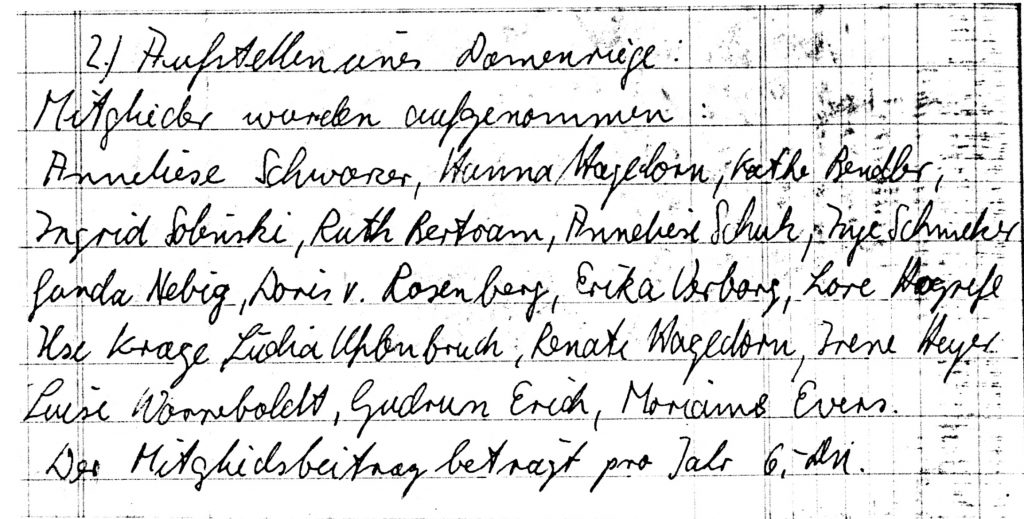 2.) Aufstellen eines Damenriege:
Mitglieder wurden aufgenommen:
Anneliese Schwarzer, Hanna Hagedorn, Käthe Bendler,
Ingrid Sobinski, Ruth Bertram, Anneliese Schuh, Inge
Nebig, Doris v. Rosenberg, Erika Verborg, Lore Hogrefe
Ilse Krage, Lidia Uhlenbruch, Renate Hagedorn, Irene Heyer
Luise Warneboldt, Gudrun Erich, Marianne Evers.
Der Mitgliedsbeitrag beträgt pro Jahr 6,- DM.